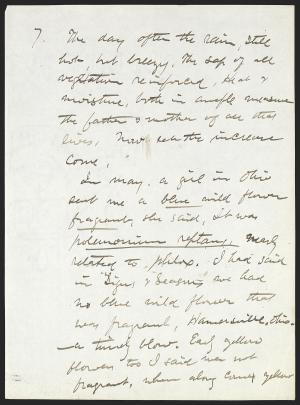 7. The day after the rain, still
hot, but breezy. The sap of all
vegetation reinforced, heat &
moisture, both in ample measure
the father & mother of all that
lives. Now see the increase
come."
In May, a girl in Ohio
sent me a blue wild flower
fragrant, she said, it was
polemonium reptans, nearly
related to phlox. I had said
in "Signs & Seasons" we had
no blue wild flower that
was fragrant, Hamersville, Ohio
— a timely blow. Early yellow
flowers too I said were not
fragrant, when along comes yellow